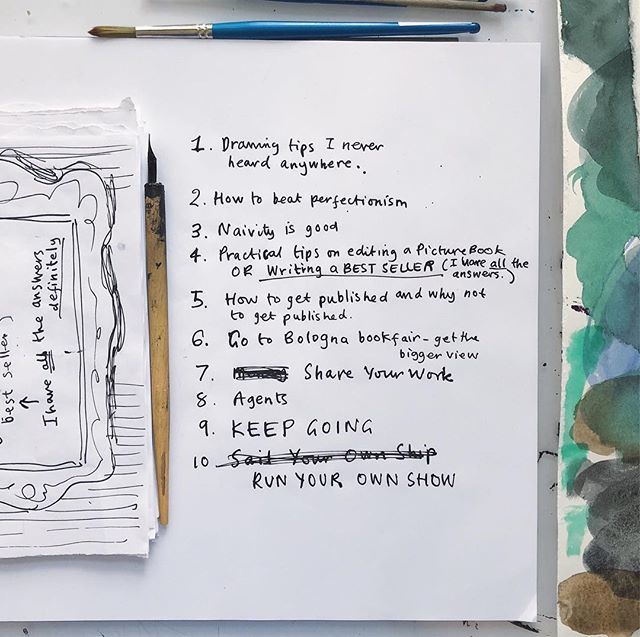 1. Drawing tips I never
heard anywhere..
2. How to beat perfectionism
3. Naivity is good
4. Practical tips on editing a Picture BOOK
OR Writing a BEST SELLER (I have all the
answers.)
5. How to get published and why not
to get published.
6. Go to Bologna bookfair - get the
bigger view
7. Share Your Work
8. Agents
9. KEEP GOING
10 Sail Your Own Ship
RUN YOUR OWN SHOW
best seller)
I have all the answers
definitely